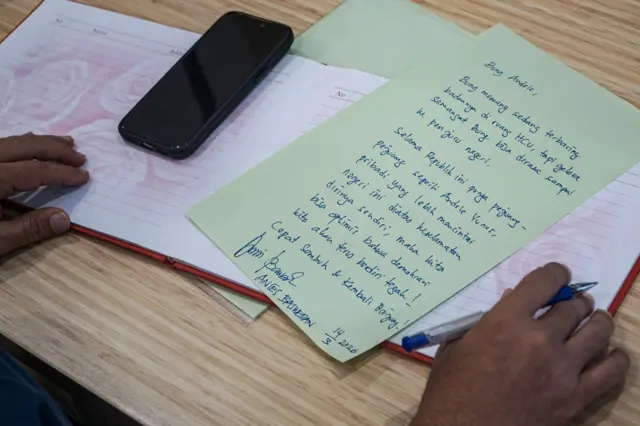 No
Name
Bung Andrie,
Bung memang sedang terbaring
badannya di ruang HCU, tapi gelora
semangat Bung bisa dirasakan sampai
ke penjuru negeri.
Selama Republik ini punya pejuang-
pejuang seperti Andrie Yunus,
pribadi yang lebih mencintai
negeri ini diatas keselamatan
dirinya sendiri, maka kita
bisa optimis, bahwa demokrasi
kita akan terus berdiri tegak!
Cepat Sembuh & Kembali Berjuang!
ANIES BASWEDAN
14/3 2026
No